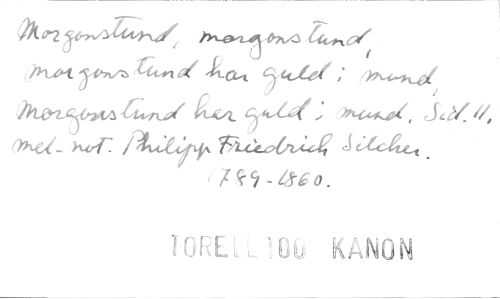 Morgonstund, morgonstund,
morgonstund har guld i mund,
Morgonstund har guld i mund. Sid. 11.
mel-not. Philipp Friedrich Silcher.
1789-1860.
TORELL 100 KANON